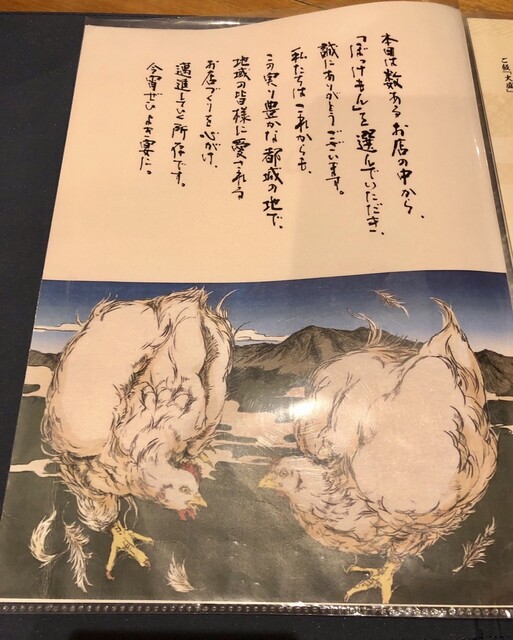 本日は数あるお店の中から、
「ぼっけもん」を選んでいただき、
誠にありがとうございます。
私たちはこれからも、
この実り豊かな都城の地で、
地域の皆様に愛される
お店づくりを心がけ、
邁進していく所存です。
今宵ぜひよき宴に。
ご飯「大盛」